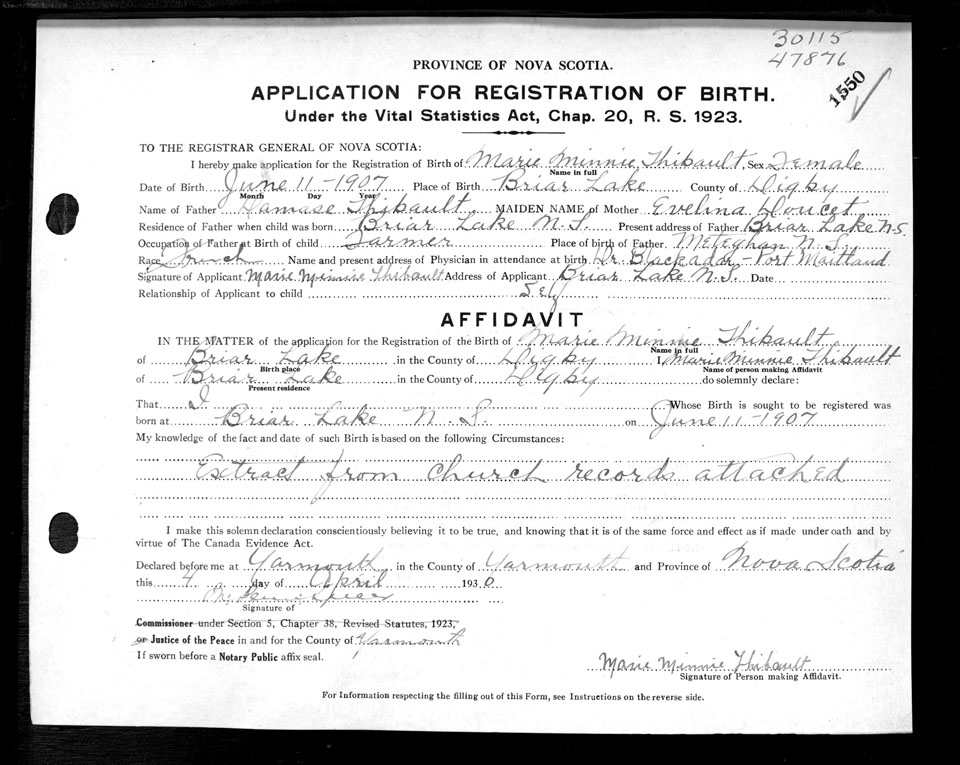 30115
47876
1550
PROVINCE OF NOVA SCOTIA.
APPLICATION FOR REGISTRATION OF BIRTH.
Under the Vital Statistics Act, Chap. 20, R. S. 1923.
TO THE REGISTRAR GENERAL OF NOVA SCOTIA:
I hereby make application for the Registration of Birth of Marie Minnie Thibault Sex Female
Name in full
Date of Birth June 11-1907 Place of Birth Briar Lake County of Digby
Month Day Year
Name of Father Damase Thibault MAIDEN NAME of Mother Evelina Doucet
Residence of Father when child was born Briar Lake N.S. Present address of Father Briar Lake N.S.
Occupation of Father at Birth of child Farmer Place of birth of Father Meteghan N.S.
Race French Name and present address of Physician in attendance at birth Dr. Blackadar - Port Maitland
Signature of Applicant Marie Minnie Thibault Address of Applicant Briar Lake N.S. Date
Relationship of Applicant to child Self
AFFIDAVIT
IN THE MATTER of the application for the Registration of the Birth of Marie Minnie Thibault
Name in full
of Briar Lake in the County of Digby I, Marie Minnie Thibault
Birth place Name of person making Affidavit
of Briar Lake in the County of Digby do solemnly declare:
Present residence
That I Whose Birth is sought to be registered was
born at Briar Lake N.S. on June 11-1907
My knowledge of the fact and date of such Birth is based on the following Circumstances:
Extract from church records attached
I make this solemn declaration conscientiously believing it to be true, and knowing that it is of the same force and effect as if made under oath and by
virtue of The Canada Evidence Act.
Declared before me at Yarmouth in the County of Yarmouth and Province of Nova Scotia
this 4 day of April 1930
Signature of
Commissioner under Section 5, Chapter 38, Revised Statutes, 1923,
or Justice of the Peace in and for the County of Yarmouth
If sworn before a Notary Public affix seal.
Marie Minnie Thibault
Signature of Person making Affidavit.
For Information respecting the filling out of this Form, see Instructions on the reverse side.